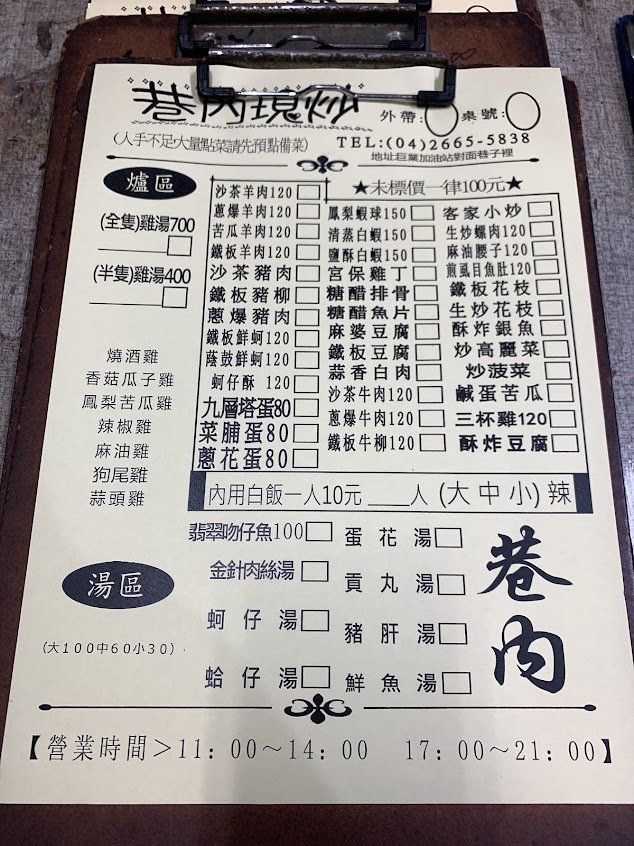 巷內現炒
外帶: 桌號:
(人手不足大量點菜請先預點備菜)
TEL:(04)2665-5838
地址巨業加油站對面巷子裡
爐區
(全隻)雞湯700
(半隻)雞湯400
燒酒雞
香菇瓜子雞
鳳梨苦瓜雞
辣椒雞
麻油雞
狗尾雞
蒜頭雞
沙茶羊肉120
蔥爆羊肉120
苦瓜羊肉120
鐵板羊肉120
沙茶豬肉
鐵板豬柳
蔥爆豬肉
鐵板鮮蚵120
蔭鼓鮮蚵120
蚵仔酥 120
九層塔蛋80
菜脯蛋80
蔥花蛋80
★未標價一律100元★
鳳梨蝦球150
清蒸白蝦150
鹽酥白蝦150
宮保雞丁
糖醋排骨
糖醋魚片
麻婆豆腐
鐵板豆腐
蒜香白肉
沙茶牛肉120
蔥爆牛肉120
鐵板牛柳120
客家小炒
生炒螺肉120
麻油腰子120
煎虱目魚肚120
鐵板花枝
生炒花枝
酥炸銀魚
炒高麗菜
炒菠菜
鹹蛋苦瓜
三杯雞120
酥炸豆腐
內用白飯一人10元 ____人 (大中小)辣
湯區
(大100中60小30)
翡翠吻仔魚100
金針肉絲湯
蚵仔湯
蛤仔湯
蛋花湯
貢丸湯
豬肝湯
鮮魚湯
巷內
【營業時間>11:00~14:00 17:00~21:00】